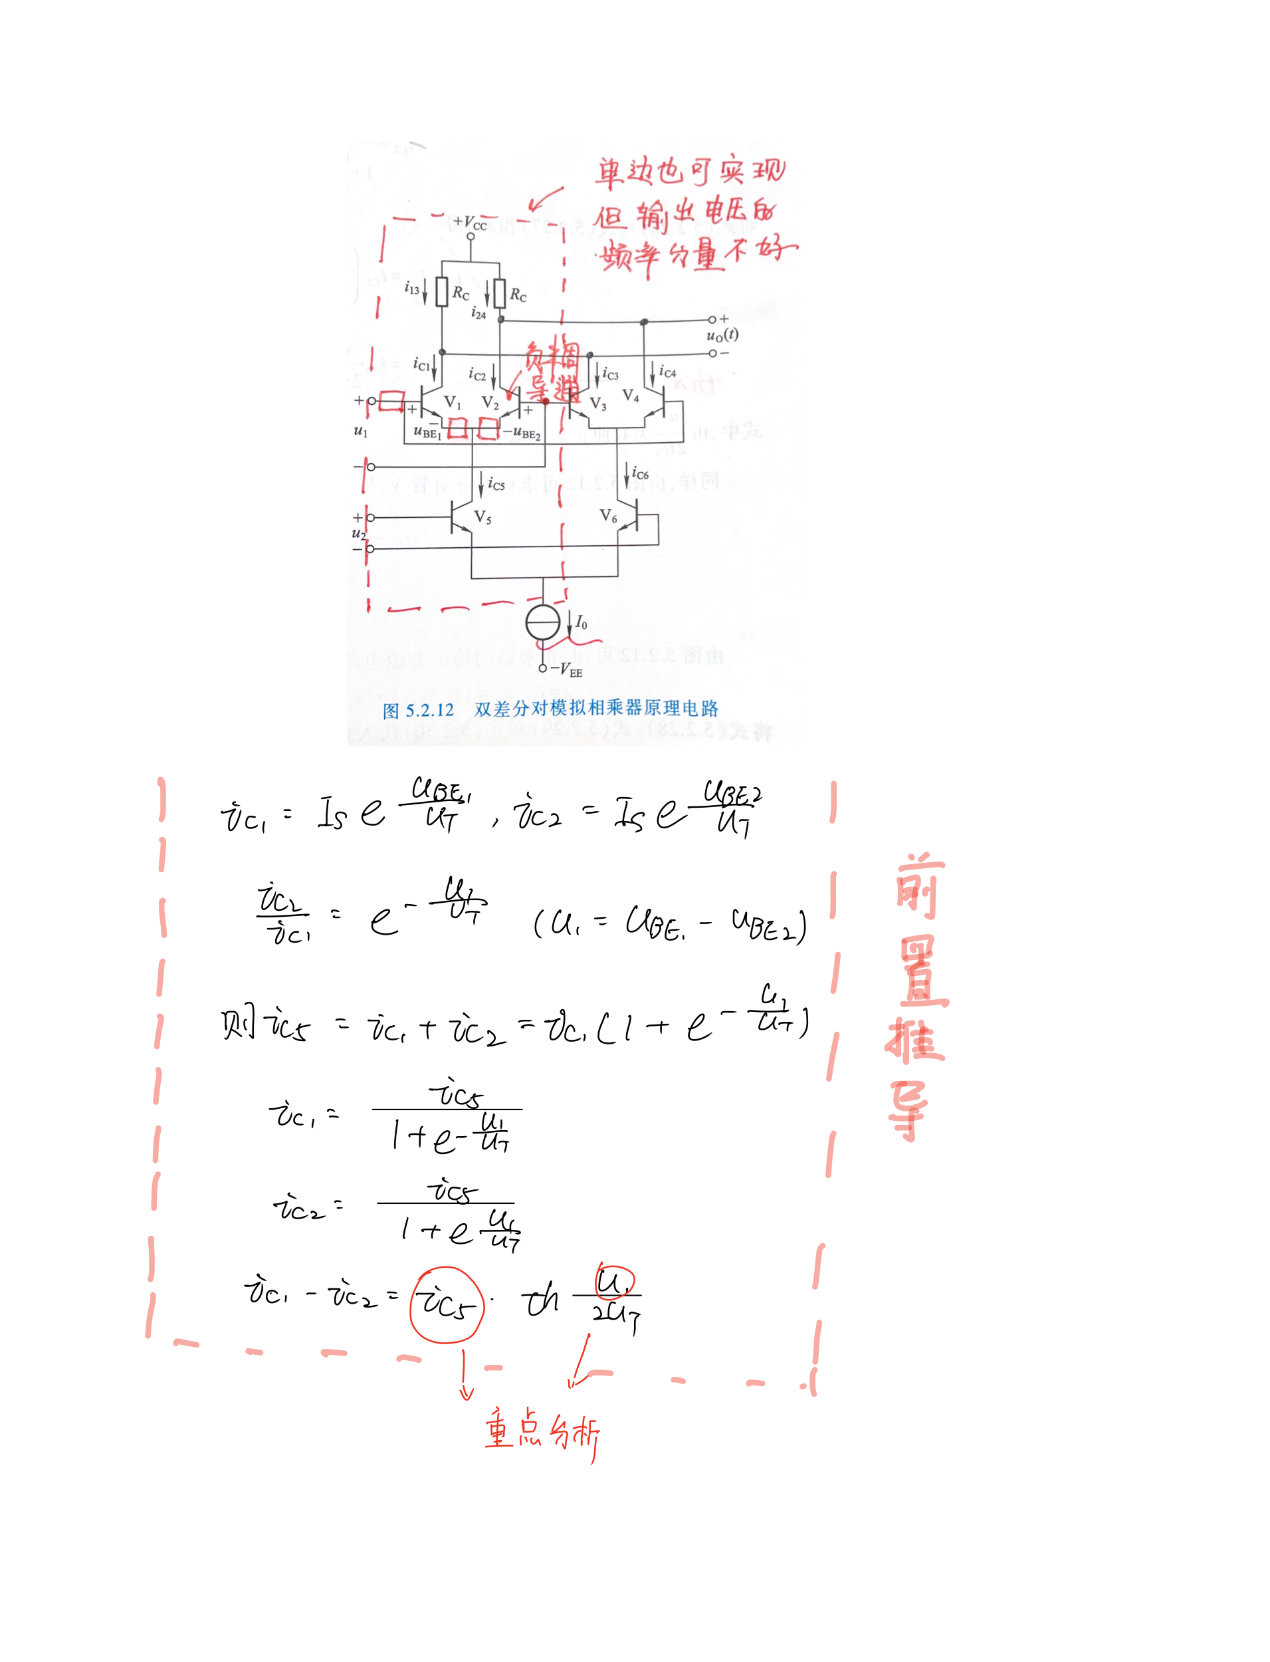 单边也可实现
但输出电压的
频率分量不好
+V_CC
i_13 R_C R_C
i_24
+
u_O(t)
−
i_C1 i_C2 负半周 i_C3 i_C4
导通
+ + V_1 V_2 + V_3 V_4
u_1 u_BE1 − −u_BE2
−
i_C5 i_C6
+ V_5 V_6
u_2
−
I_0
−V_EE
图 5.2.12 双差分对模拟相乘器原理电路
i_C1 = I_S e^{u_BE1/u_T}, i_C2 = I_S e^{u_BE2/u_T}
i_C2/i_C1 = e^{−u_1/u_T} (u_1 = u_BE1 − u_BE2)
则 i_C5 = i_C1 + i_C2 = i_C1(1 + e^{−u_1/u_T})
i_C1 = i_C5/(1 + e^{−u_1/u_T})
i_C2 = i_C5/(1 + e^{u_1/u_T})
i_C1 − i_C2 = i_C5 · th u_1/2u_T
重点分析
前置推导